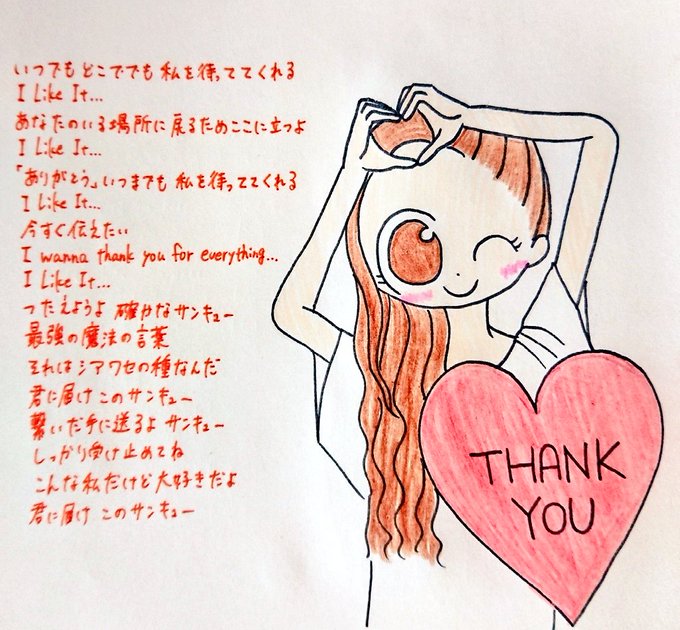 いつでも どこででも 私を待っててくれる
I Like It...
あなたのいる場所に戻るためここに立つよ
I Like It...
「ありがとう」いつまでも 私を待っててくれる
I Like It...
今すぐ伝えたい
I wanna thank you for everything...
I Like It...
つたえようよ 確かなサンキュー
最強の魔法の言葉
それはシアワセの種なんだ
君に届け このサンキュー
繋いだ手に送るよ サンキュー
しっかり受け止めてね
こんな私だけど大好きだよ
君に届け このサンキュー
THANK
YOU